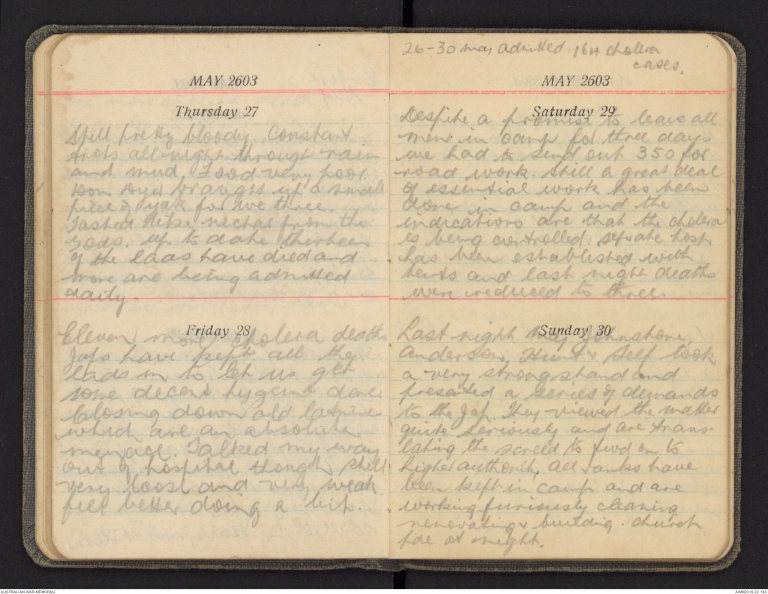 MAY 2603
Thursday 27
Still pretty bloody. Constant
trots all night through rain
and mud. Food very poor.
Don Dyer brought up a small
piece of yak for we three.
Tasted like nectar from the
gods. Up to date thirteen
of the lads have died and
more are being admitted
daily.
Friday 28
Eleven more cholera deaths
Japs have kept all the
lads in to let us get
some decent hygiene done
Closing down old latrines
which are an absolute
menace. Talked my way
out of hospital though still
very loose and very weak
feel better doing a bit.
26-30 May admitted 164 cholera
cases.
MAY 2603
Saturday 29
Despite a promise to leave all
men in camp for three days
we had to send out 350 for
road work. Still a great deal
of essential work has been
done in camp and the
indications are that the cholera
is being controlled. Separate hosp
has been established with
tents and last night deaths
were reduced to three.
Sunday 30
Last night Maj Johnstone,
Anderson, Hunt & self took
a very strong stand and
presented a series of demands
to the Jap. They viewed the matter
quite seriously and are trans-
lating the screed to fwd on to
higher authority, all ranks have
been kept in camp and are
working furiously cleaning
renovating & building. Church
pde at night.
AUSTRALIAN WAR MEMORIAL